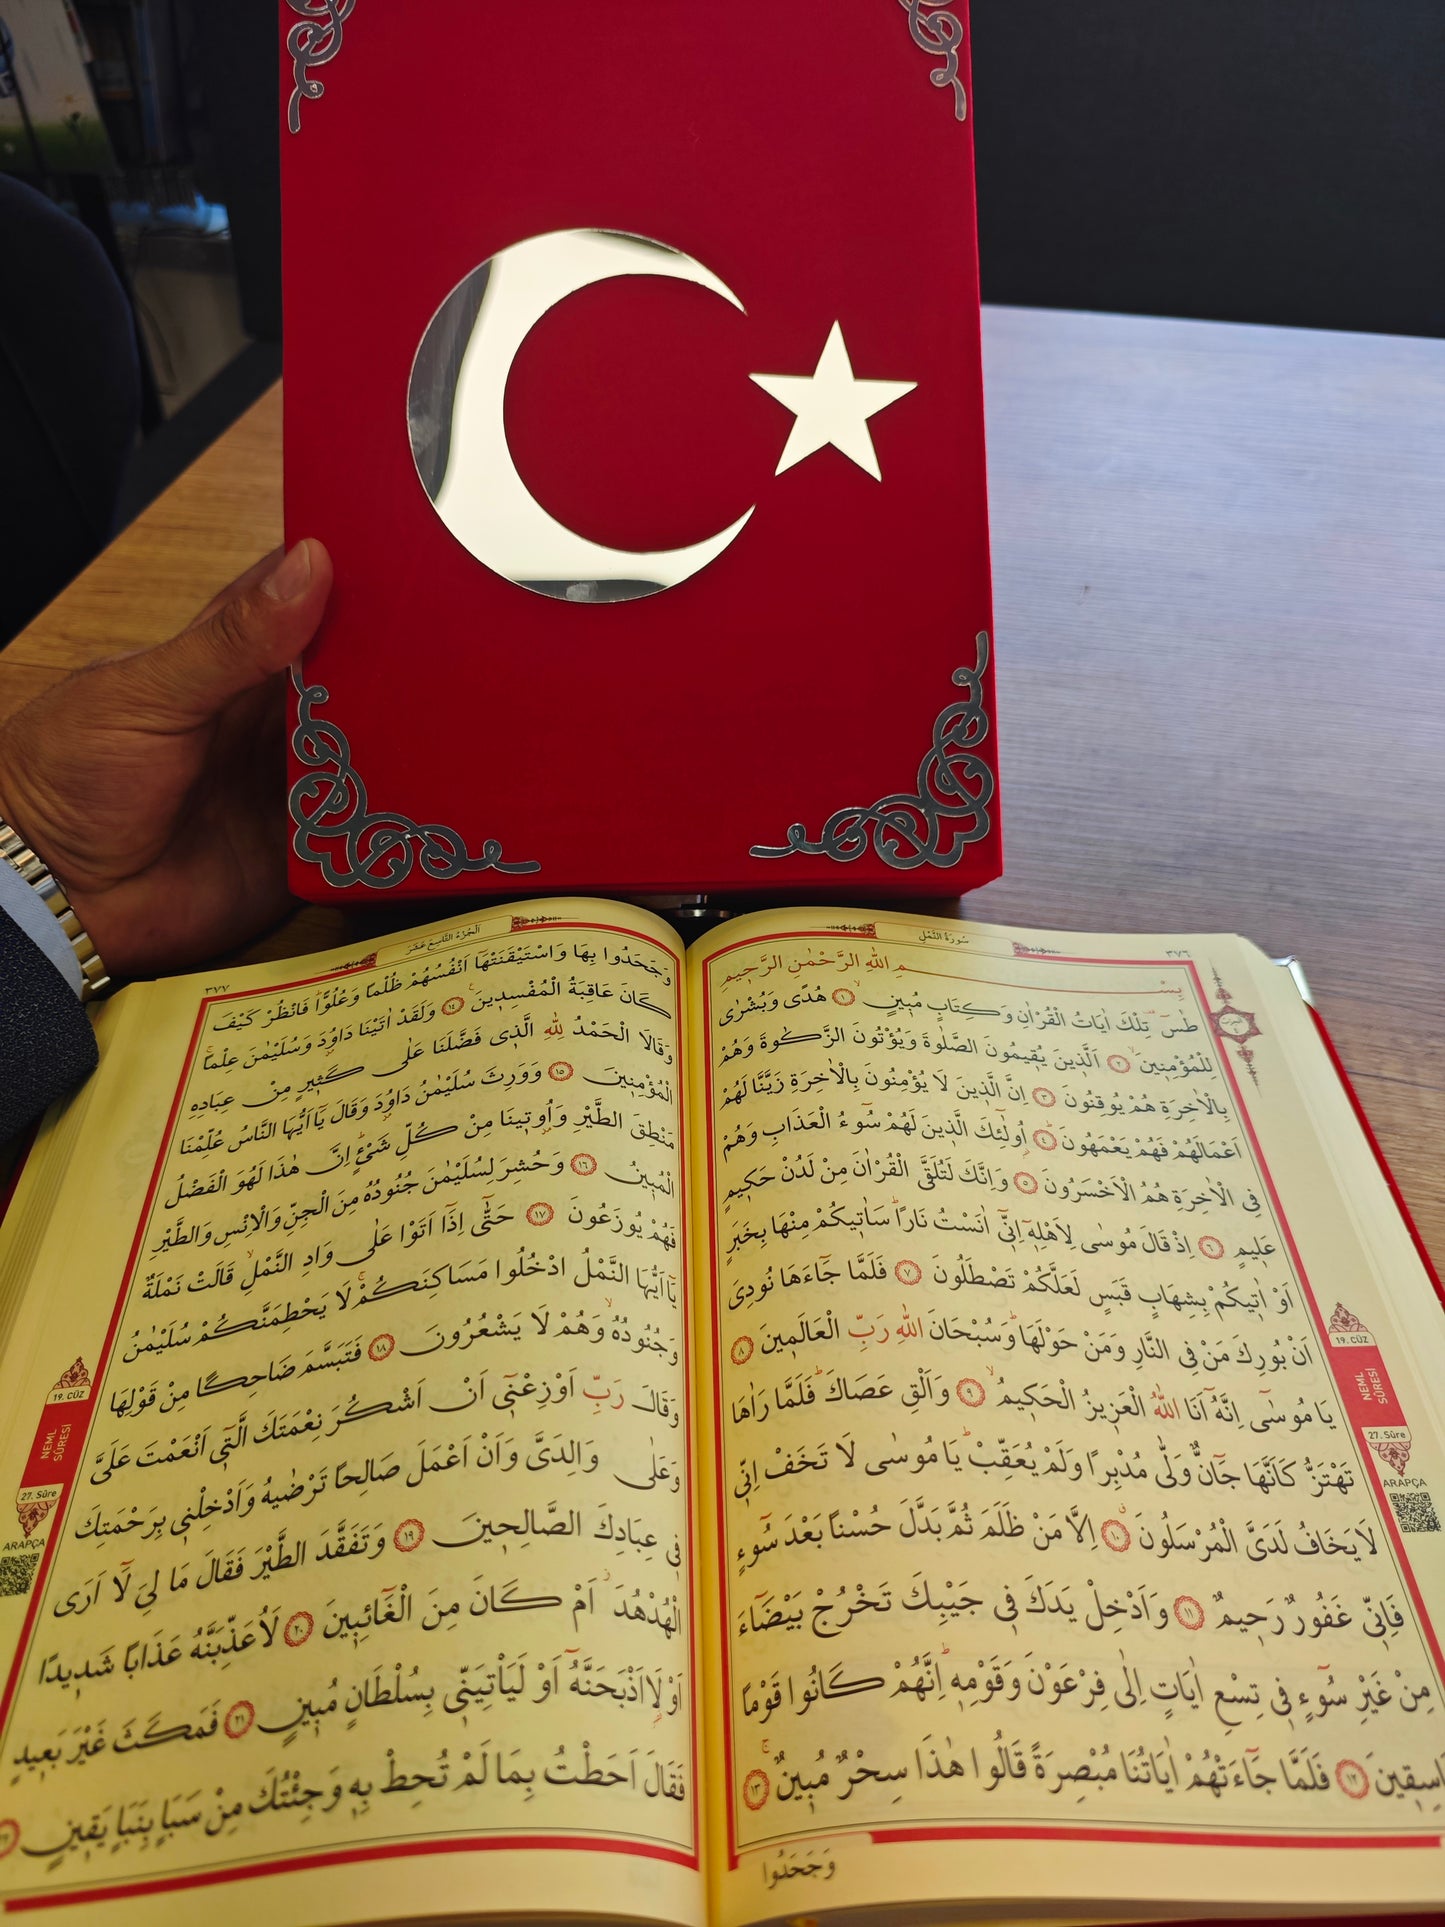 سُورَةُ النَّمْلِ
٣٧٦
بِسْــــــمِ اللهِ الرَّحْمٰنِ الرَّحٖيمِ
طٰسٓ تِلْكَ اٰيَاتُ الْقُرْاٰنِ وَكِتَابٍ مُبٖينٍۙ ﴿١﴾ هُدًى وَبُشْرٰى
لِلْمُؤْمِنٖينَۙ ﴿٢﴾ اَلَّذٖينَ يُقٖيمُونَ الصَّلٰوةَ وَيُؤْتُونَ الزَّكٰوةَ وَهُمْ
بِالْاٰخِرَةِ هُمْ يُوقِنُونَ ﴿٣﴾ اِنَّ الَّذٖينَ لَا يُؤْمِنُونَ بِالْاٰخِرَةِ زَيَّنَّا لَهُمْ
اَعْمَالَهُمْ فَهُمْ يَعْمَهُونَۜ ﴿٤﴾ اُو۬لٰٓئِكَ الَّذٖينَ لَهُمْ سُٓوءُ الْعَذَابِ وَهُمْ
فِي الْاٰخِرَةِ هُمُ الْاَخْسَرُونَ ﴿٥﴾ وَاِنَّكَ لَتُلَقَّى الْقُرْاٰنَ مِنْ لَدُنْ حَكٖيمٍ
عَلٖيمٍ ﴿٦﴾ اِذْ قَالَ مُوسٰى لِاَهْلِهٖٓ اِنّٖٓي اٰنَسْتُ نَارًاۜ سَاٰتٖيكُمْ مِنْهَا بِخَبَرٍ
اَوْ اٰتٖيكُمْ بِشِهَابٍ قَبَسٍ لَعَلَّكُمْ تَصْطَلُونَ ﴿٧﴾ فَلَمَّا جَٓاءَهَا نُودِيَ
اَنْ بُورِكَ مَنْ فِي النَّارِ وَمَنْ حَوْلَهَاۜ وَسُبْحَانَ اللهِ رَبِّ الْعَالَمٖينَ ﴿٨﴾
يَا مُوسٰٓى اِنَّهُٓ اَنَا اللهُ الْعَزٖيزُ الْحَكٖيمُۙ ﴿٩﴾ وَاَلْقِ عَصَاكَۜ فَلَمَّا رَاٰهَا
تَهْتَزُّ كَاَنَّهَا جَٓانٌّ وَلّٰى مُدْبِرًا وَلَمْ يُعَقِّبْۜ يَا مُوسٰى لَا تَخَفْ اِنّٖي
لَا يَخَافُ لَدَيَّ الْمُرْسَلُونَۗ ﴿١٠﴾ اِلَّا مَنْ ظَلَمَ ثُمَّ بَدَّلَ حُسْنًا بَعْدَ سُٓوءٍ
فَاِنّٖي غَفُورٌ رَحٖيمٌ ﴿١١﴾ وَاَدْخِلْ يَدَكَ فٖي جَيْبِكَ تَخْرُجْ بَيْضَٓاءَ
مِنْ غَيْرِ سُٓوءٍ فٖي تِسْعِ اٰيَاتٍ اِلٰى فِرْعَوْنَ وَقَوْمِهٖۜ اِنَّهُمْ كَانُوا قَوْمًا
فَاسِقٖينَ ﴿١٢﴾ فَلَمَّا جَٓاءَتْهُمْ اٰيَاتُنَا مُبْصِرَةً قَالُوا هٰذَا سِحْرٌ مُبٖينٌۚ ﴿١٣﴾
وَجَحَدُوا
19. CÜZ
NEML
SÛRESİ
27. Sûre
ARAPÇA
اَلْجُزْءُ التَّاسِعَ عَشَرَ
٣٧٧
وَجَحَدُوا بِهَا وَاسْتَيْقَنَتْهَٓا اَنْفُسُهُمْ ظُلْمًا وَعُلُوًّاۜ فَانْظُرْ كَيْفَ
كَانَ عَاقِبَةُ الْمُفْسِدٖينَ۟ ﴿١٤﴾ وَلَقَدْ اٰتَيْنَا دَاوُ۫دَ وَسُلَيْمٰنَ عِلْمًاۚ
وَقَالَا الْحَمْدُ لِلّٰهِ الَّذٖي فَضَّلَنَا عَلٰى كَثٖيرٍ مِنْ عِبَادِهِ
الْمُؤْمِنٖينَ ﴿١٥﴾ وَوَرِثَ سُلَيْمٰنُ دَاوُ۫دَ وَقَالَ يَٓا اَيُّهَا النَّاسُ عُلِّمْنَا
مَنْطِقَ الطَّيْرِ وَاُو۫تٖينَا مِنْ كُلِّ شَيْءٍۜ اِنَّ هٰذَا لَهُوَ الْفَضْلُ
الْمُبٖينُ ﴿١٦﴾ وَحُشِرَ لِسُلَيْمٰنَ جُنُودُهُ مِنَ الْجِنِّ وَالْاِنْسِ وَالطَّيْرِ
فَهُمْ يُوزَعُونَ ﴿١٧﴾ حَتّٰٓى اِذَٓا اَتَوْا عَلٰى وَادِ النَّمْلِۙ قَالَتْ نَمْلَةٌ
يَٓا اَيُّهَا النَّمْلُ ادْخُلُوا مَسَاكِنَكُمْۚ لَا يَحْطِمَنَّكُمْ سُلَيْمٰنُ
وَجُنُودُهُۙ وَهُمْ لَا يَشْعُرُونَ ﴿١٨﴾ فَتَبَسَّمَ ضَاحِكًا مِنْ قَوْلِهَا
وَقَالَ رَبِّ اَوْزِعْنٖٓي اَنْ اَشْكُرَ نِعْمَتَكَ الَّتٖٓي اَنْعَمْتَ عَلَيَّ
وَعَلٰى وَالِدَيَّ وَاَنْ اَعْمَلَ صَالِحًا تَرْضٰيهُ وَاَدْخِلْنٖي بِرَحْمَتِكَ
فٖي عِبَادِكَ الصَّالِحٖينَ ﴿١٩﴾ وَتَفَقَّدَ الطَّيْرَ فَقَالَ مَا لِيَ لَٓا اَرَى
الْهُدْهُدَۘ اَمْ كَانَ مِنَ الْغَٓائِبٖينَ ﴿٢٠﴾ لَاُعَذِّبَنَّهُ عَذَابًا شَدٖيدًا
اَوْ لَا۬اَذْبَحَنَّهُٓ اَوْ لَيَأْتِيَنّٖي بِسُلْطَانٍ مُبٖينٍ ﴿٢١﴾ فَمَكَثَ غَيْرَ بَعٖيدٍ
فَقَالَ اَحَطْتُ بِمَا لَمْ تُحِطْ بِهٖ وَجِئْتُكَ مِنْ سَبَاٍ بِنَبَاٍ يَقٖينٍ
19. CÜZ
NEML
SÛRESİ
27. Sûre
ARAPÇA